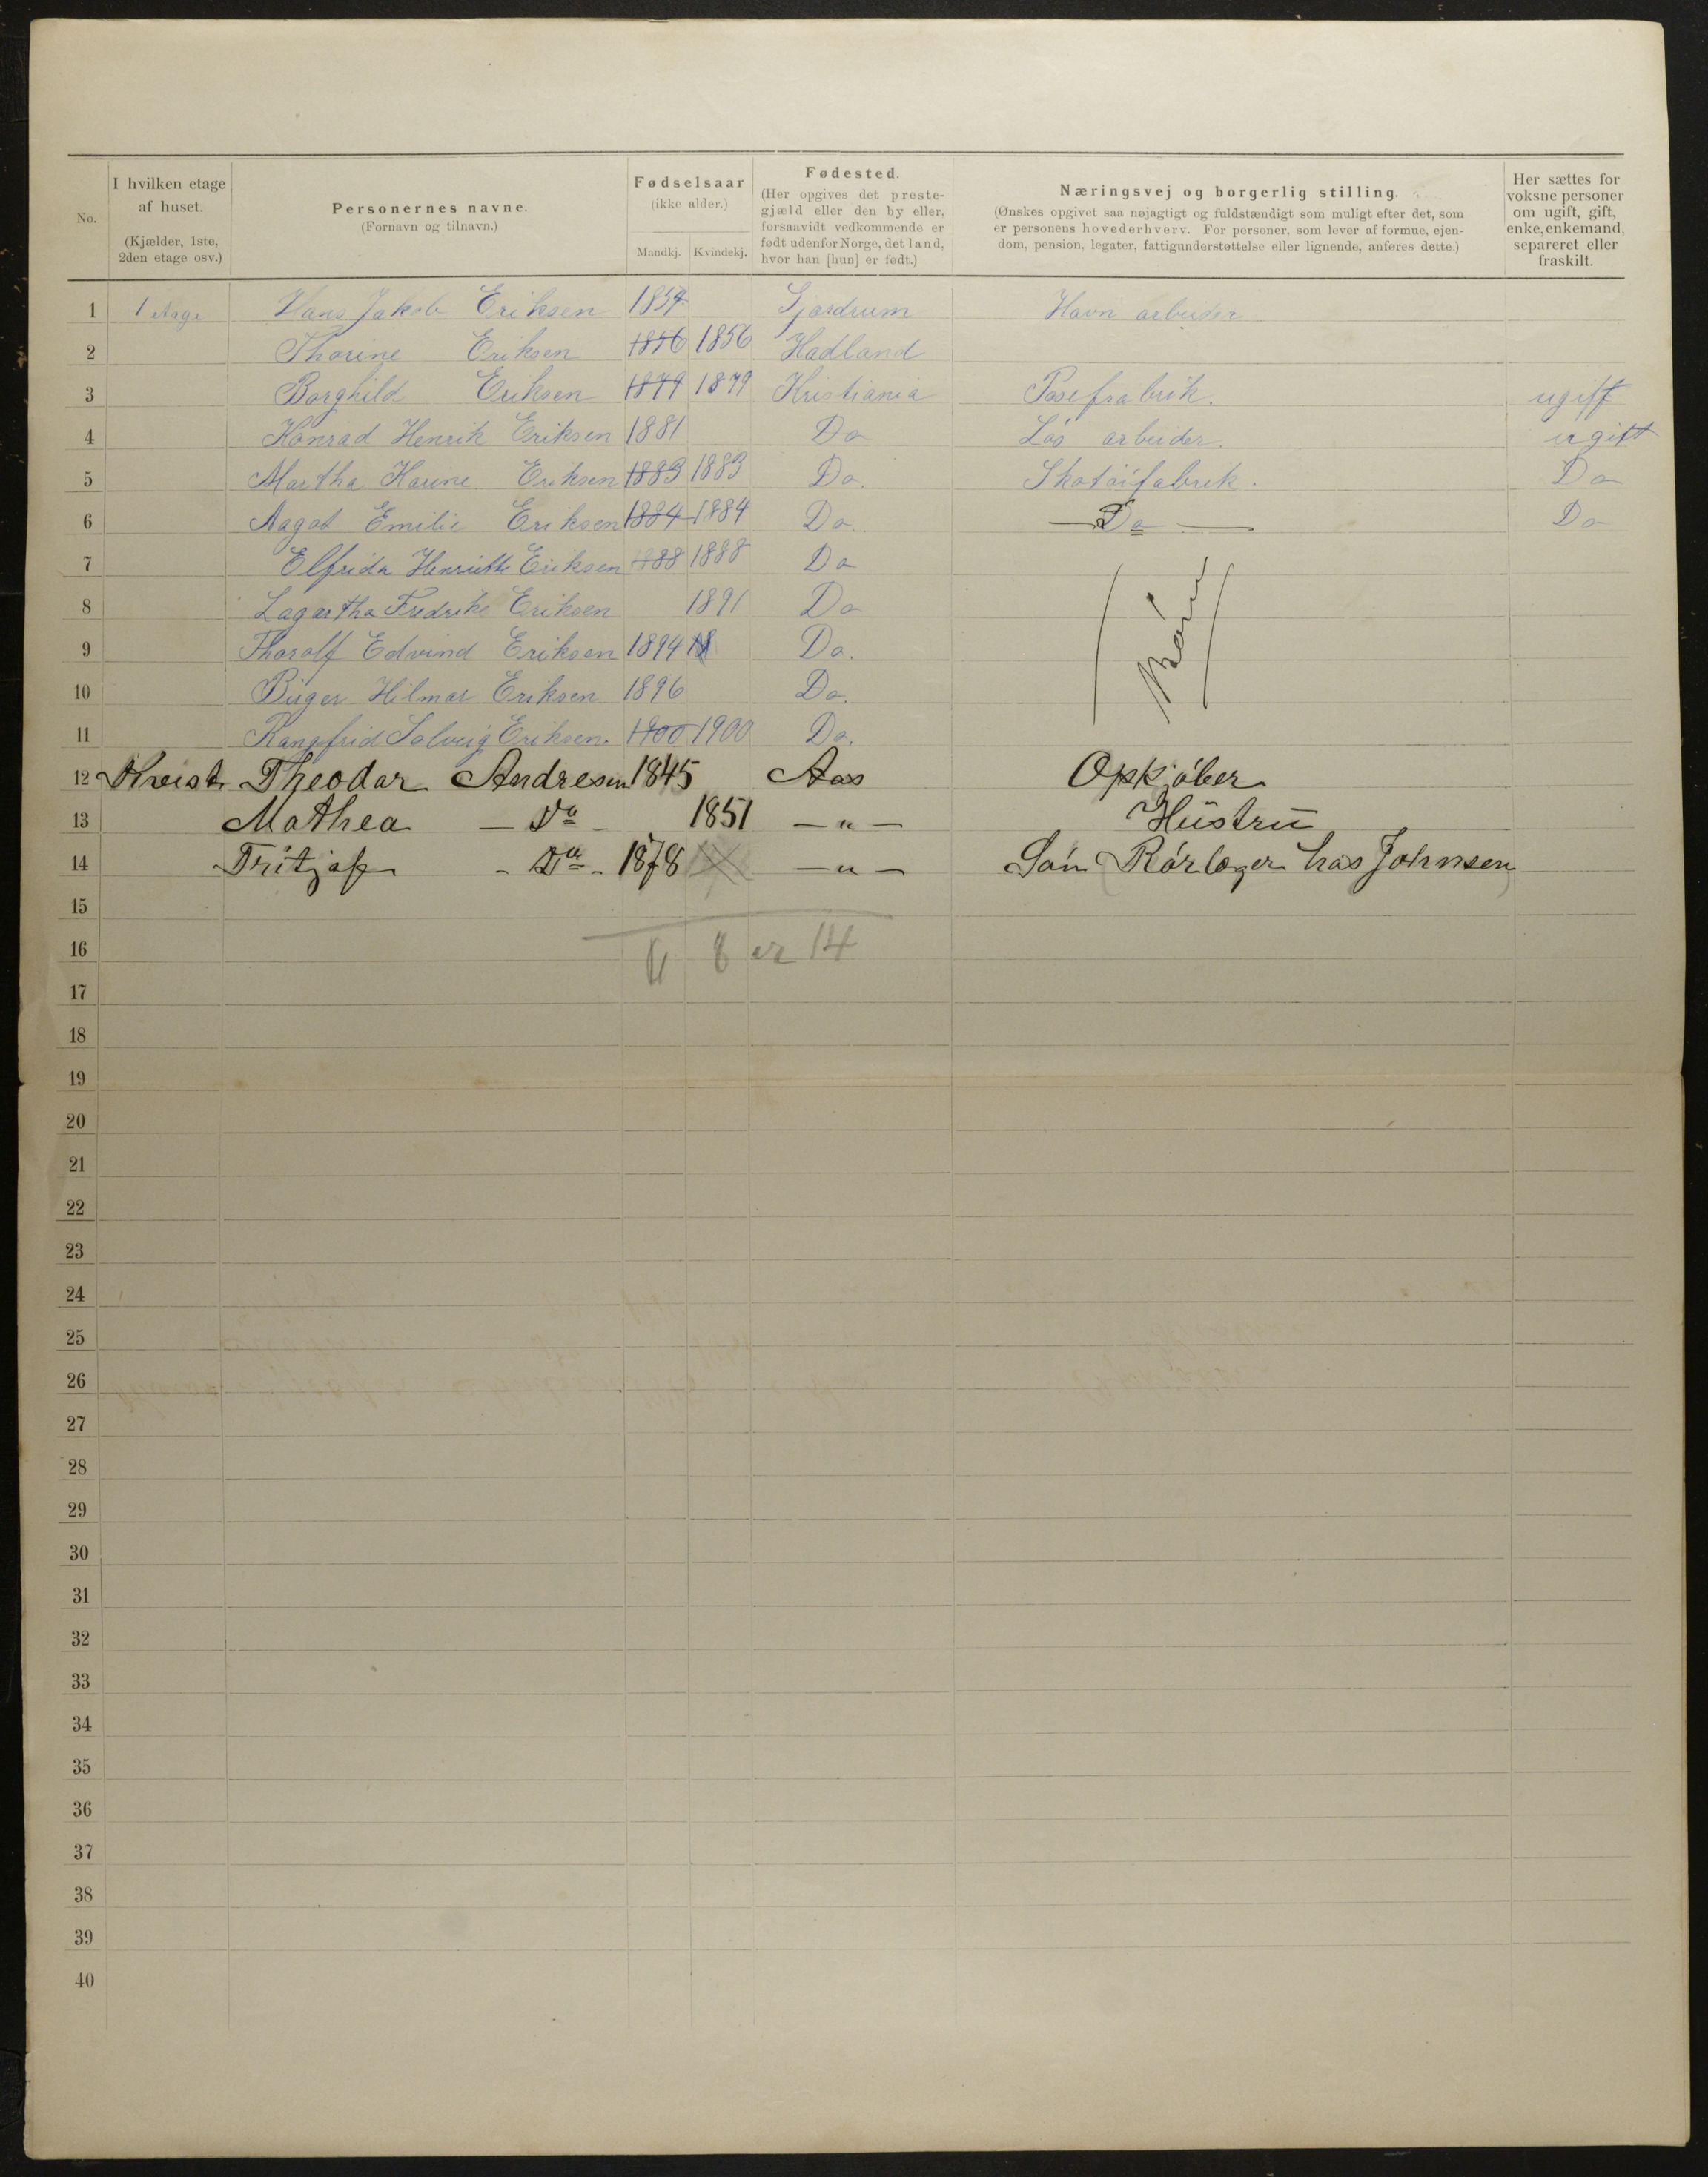 No.
I hvilken etage af huset.
(Kjælder, 1ste, 2den etage osv.)
Personernes navne.
(Fornavn og tilnavn.)
Fødselsaar
(ikke alder.)
Mandkj. Kvindekj.
Fødested.
(Her opgives det prestegjæld eller den by eller, forsaavidt vedkommende er født udenfor Norge, det land, hvor han [hun] er født.)
Næringsvej og borgerlig stilling.
(Ønskes opgivet saa nøjagtigt og fuldstændigt som muligt efter det, som er personens hovederhverv. For personer, som lever af formue, ejendom, pension, legater, fattigunderstøttelse eller lignende, anføres dette.)
Her sættes for voksne personer om ugift, gift, enke, enkemand, separeret eller fraskilt.
1 1 Hans Jakob Eriksen 1854 Gjerdrum Havn arbeider
2 Thorine Eriksen 1856 1856 Hadland
3 Borghild Eriksen 1879 1879 Kristiania Posefrabrik. ugift
4 Konrad Henrik Eriksen 1881 Do Løs arbeider. ugift
5 Martha Karine Eriksen 1883 1883 Do. Skotøifabrik. Do
6 Aagot Emilie Eriksen 1884 1884 Do. — Do — Do
7 Elfrida Henriette Eriksen 1888 1888 Do
8 Lagertha Fredrike Eriksen 1891 Do
9 Thorolf Edvind Eriksen 1894 Do.
10 Birger Hilmar Eriksen 1896 Do.
11 Rangfrid Solveig Eriksen. 1900 1900 Do.
Børn
12 Kvist Theodor Andresen 1845 Aas Opkjøber
13 Mathea — Do — 1851 — " — Hustru
14 Fritjof - Do - 1878 — " — Søn Rørlæger hos Johnsen
15
16 6 8 er 14
17
18
19
20
21
22
23
24
25
26
27
28
29
30
31
32
33
34
35
36
37
38
39
40